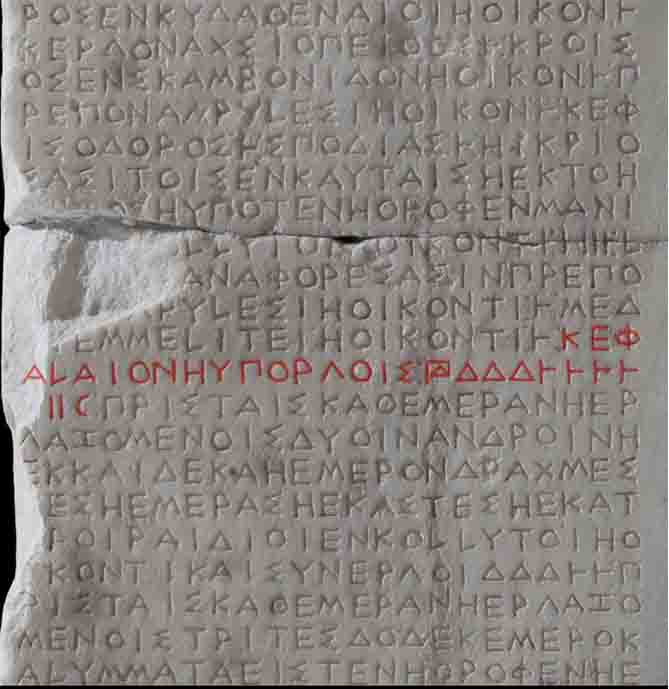 ΡΟΣΕΝΚΥΔΑΘΕΝΑΙΟΙΗΟΙΚΟΝͰ
ΚΕΡΔΟΝΑΧΣΙΟΠΕΙΘΟΣͰͰΚΡΟΙΣ
ΟΣΕΝΣΚΑΜΒΟΝΙΔΟΝΗΟΙΚΟΝͰΠ
ΡΕΠΟΝΑΛΡΥLΕΣΙΗΟΙΚΟΝͰΚΕΦ
ΙΣΟΔΟΡΟΣͰΣΠΟΔΙΑΣͰͰΚΡΙΟ
ΣΑΣΙΤΟΙΣΕΝΚLΥΤΑΙΣΗΕΚΤΟΗ
ΗΥΠΟΤΕΝΗΟΡΟΦΕΝΜΑΝΙ
LLΥΤΟΙΗΟΙΚΟΝΤΙ
ΑΝΑΦΟΡΕΣΑΣΙΝΠΡΕΠΟ
ΡΥLΕΣΙΗΟΙΚΟΝΤΙͰΜΕΔ
ΕΜΜΕLΙΤΕΙΗΟΙΚΟΝΤΙͰΚΕΦ
ΑLΑΙΟΝΗΥΠΟΡΛΟΙΣ𐅄ΔΔΔͰͰͰͰ
ΙΙCΠΡΙΣΤΑΙΣΚΑΘΕΜΕΡΑΝΗΕΡ
ΛΑΖΟΜΕΝΟΙΣΔΥΟΙΝΑΝΔΡΟΙΝΗ
ΕΚΚΑΙΔΕΚΑΗΕΜΕΡΟΝΔΡΑΧΜΕΣ
ΤΕΣΗΕΜΕΡΑΣΗΕΚΑΣΤΕΣΗΕΚΑΤ
ΡΟΙΡΑΙΔΙΟΙΕΝΚΟLLΥΤΟΙΗΟ
ΙΚΟΝΤΙΚΑΙΣΥΝΕΡΛΟΙΔΔΔͰͰΠ
ΡΙΣΤΑΙΣΚΑΘΕΜΕΡΑΝΗΕΡΛΑΖΟ
ΜΕΝΟΙΣΤΡΙΤΕΣΔΟΔΕΚΕΜΕΡΟΚ
ΑLΥΜΜΑΤΑΕΙΣΤΕΝΗΟΡΟΦΕΝΗΕ